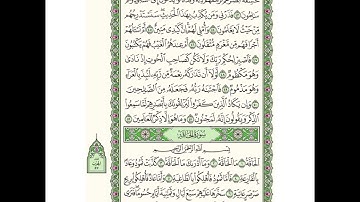 سَٰلِمُونَ ٤٣ فَذَرْنِى وَمَن يُكَذِّبُ بِهَٰذَا ٱلْحَدِيثِ سَنَسْتَدْرِجُهُم
مِّنْ حَيْثُ لَا يَعْلَمُونَ ٤٤ وَأُمْلِى لَهُمْ إِنَّ كَيْدِى مَتِينٌ ٤٥ أَمْ تَسْـَٔلُهُمْ
أَجْرًا فَهُم مِّن مَّغْرَمٍ مُّثْقَلُونَ ٤٦ أَمْ عِندَهُمُ ٱلْغَيْبُ فَهُمْ يَكْتُبُونَ ٤٧
فَٱصْبِرْ لِحُكْمِ رَبِّكَ وَلَا تَكُن كَصَاحِبِ ٱلْحُوتِ إِذْ نَادَىٰ
وَهُوَ مَكْظُومٌ ٤٨ لَّوْلَآ أَن تَدَٰرَكَهُۥ نِعْمَةٌ مِّن رَّبِّهِۦ لَنُبِذَ بِٱلْعَرَآءِ
وَهُوَ مَذْمُومٌ ٤٩ فَٱجْتَبَٰهُ رَبُّهُۥ فَجَعَلَهُۥ مِنَ ٱلصَّٰلِحِينَ ٥٠
وَإِن يَكَادُ ٱلَّذِينَ كَفَرُوا۟ لَيُزْلِقُونَكَ بِأَبْصَٰرِهِمْ لَمَّا سَمِعُوا۟
ٱلذِّكْرَ وَيَقُولُونَ إِنَّهُۥ لَمَجْنُونٌ ٥١ وَمَا هُوَ إِلَّا ذِكْرٌ لِّلْعَٰلَمِينَ ٥٢
سُورَةُ الحَاقَّةِ
بِسْمِ ٱللَّهِ ٱلرَّحْمَٰنِ ٱلرَّحِيمِ
ٱلْحَآقَّةُ ١ مَا ٱلْحَآقَّةُ ٢ وَمَآ أَدْرَىٰكَ مَا ٱلْحَآقَّةُ ٣ كَذَّبَتْ ثَمُودُ وَعَادٌۢ
بِٱلْقَارِعَةِ ٤ فَأَمَّا ثَمُودُ فَأُهْلِكُوا۟ بِٱلطَّاغِيَةِ ٥ وَأَمَّا عَادٌ فَأُهْلِكُوا۟ بِرِيحٍ
صَرْصَرٍ عَاتِيَةٍ ٦ سَخَّرَهَا عَلَيْهِمْ سَبْعَ لَيَالٍ وَثَمَٰنِيَةَ أَيَّامٍ حُسُومًا فَتَرَى